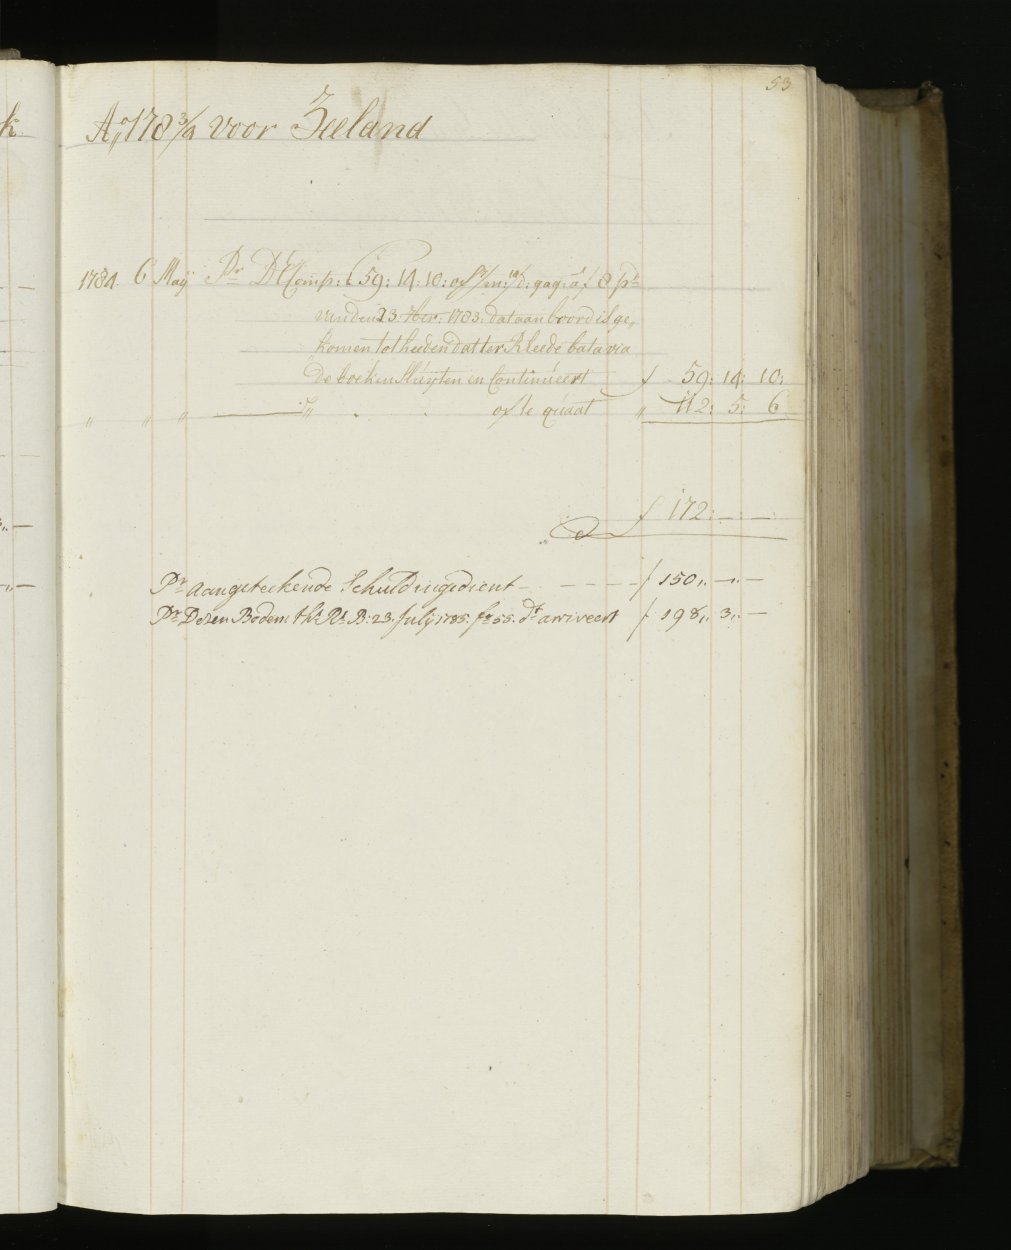 53
k.
A:o 178¾ voor Zeeland
1784. 6 Maÿ Pr. D'EComp: f 59: 14: 10: of 7/m: 14/d: gagie á f 8 p:m
van den 23: 7ber: 1783: dat aan boord is ge,
komen tot heeden dat ter Rheede batavia
de boeken sluÿten en Continúeert f 59: 14: 10:
" " " " of te quaat " 112: 5: 6
f 172: — —
Pr. aangeteekende Schuld ingedient - - - - - f 150,, —,, —
Pr. Dezen Bodem th:s R:t B: 23. July 1785. fo 55. d:t arriveert f 198,, 3,, —